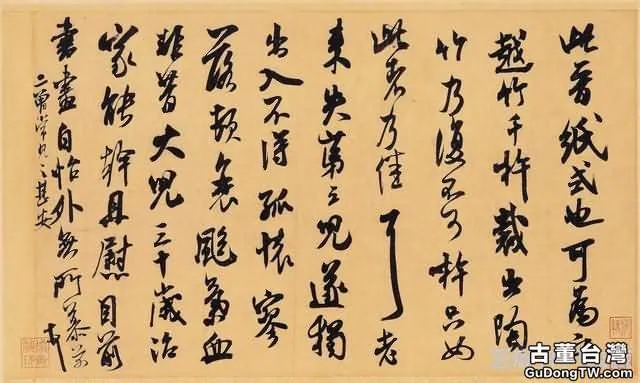 此晉紙式也可為之
越竹千杵裁出陶
竹乃復不可杵只如
此者乃佳耳老
來失第三兒遂獨
出入不得孤懷寥
落頓衰颯氣血
非昔大兒三十歲治
家能幹且慰目前
書畫自怡外無所慕芾
二曾常見之甚安
古董台灣
GuDongTW.com